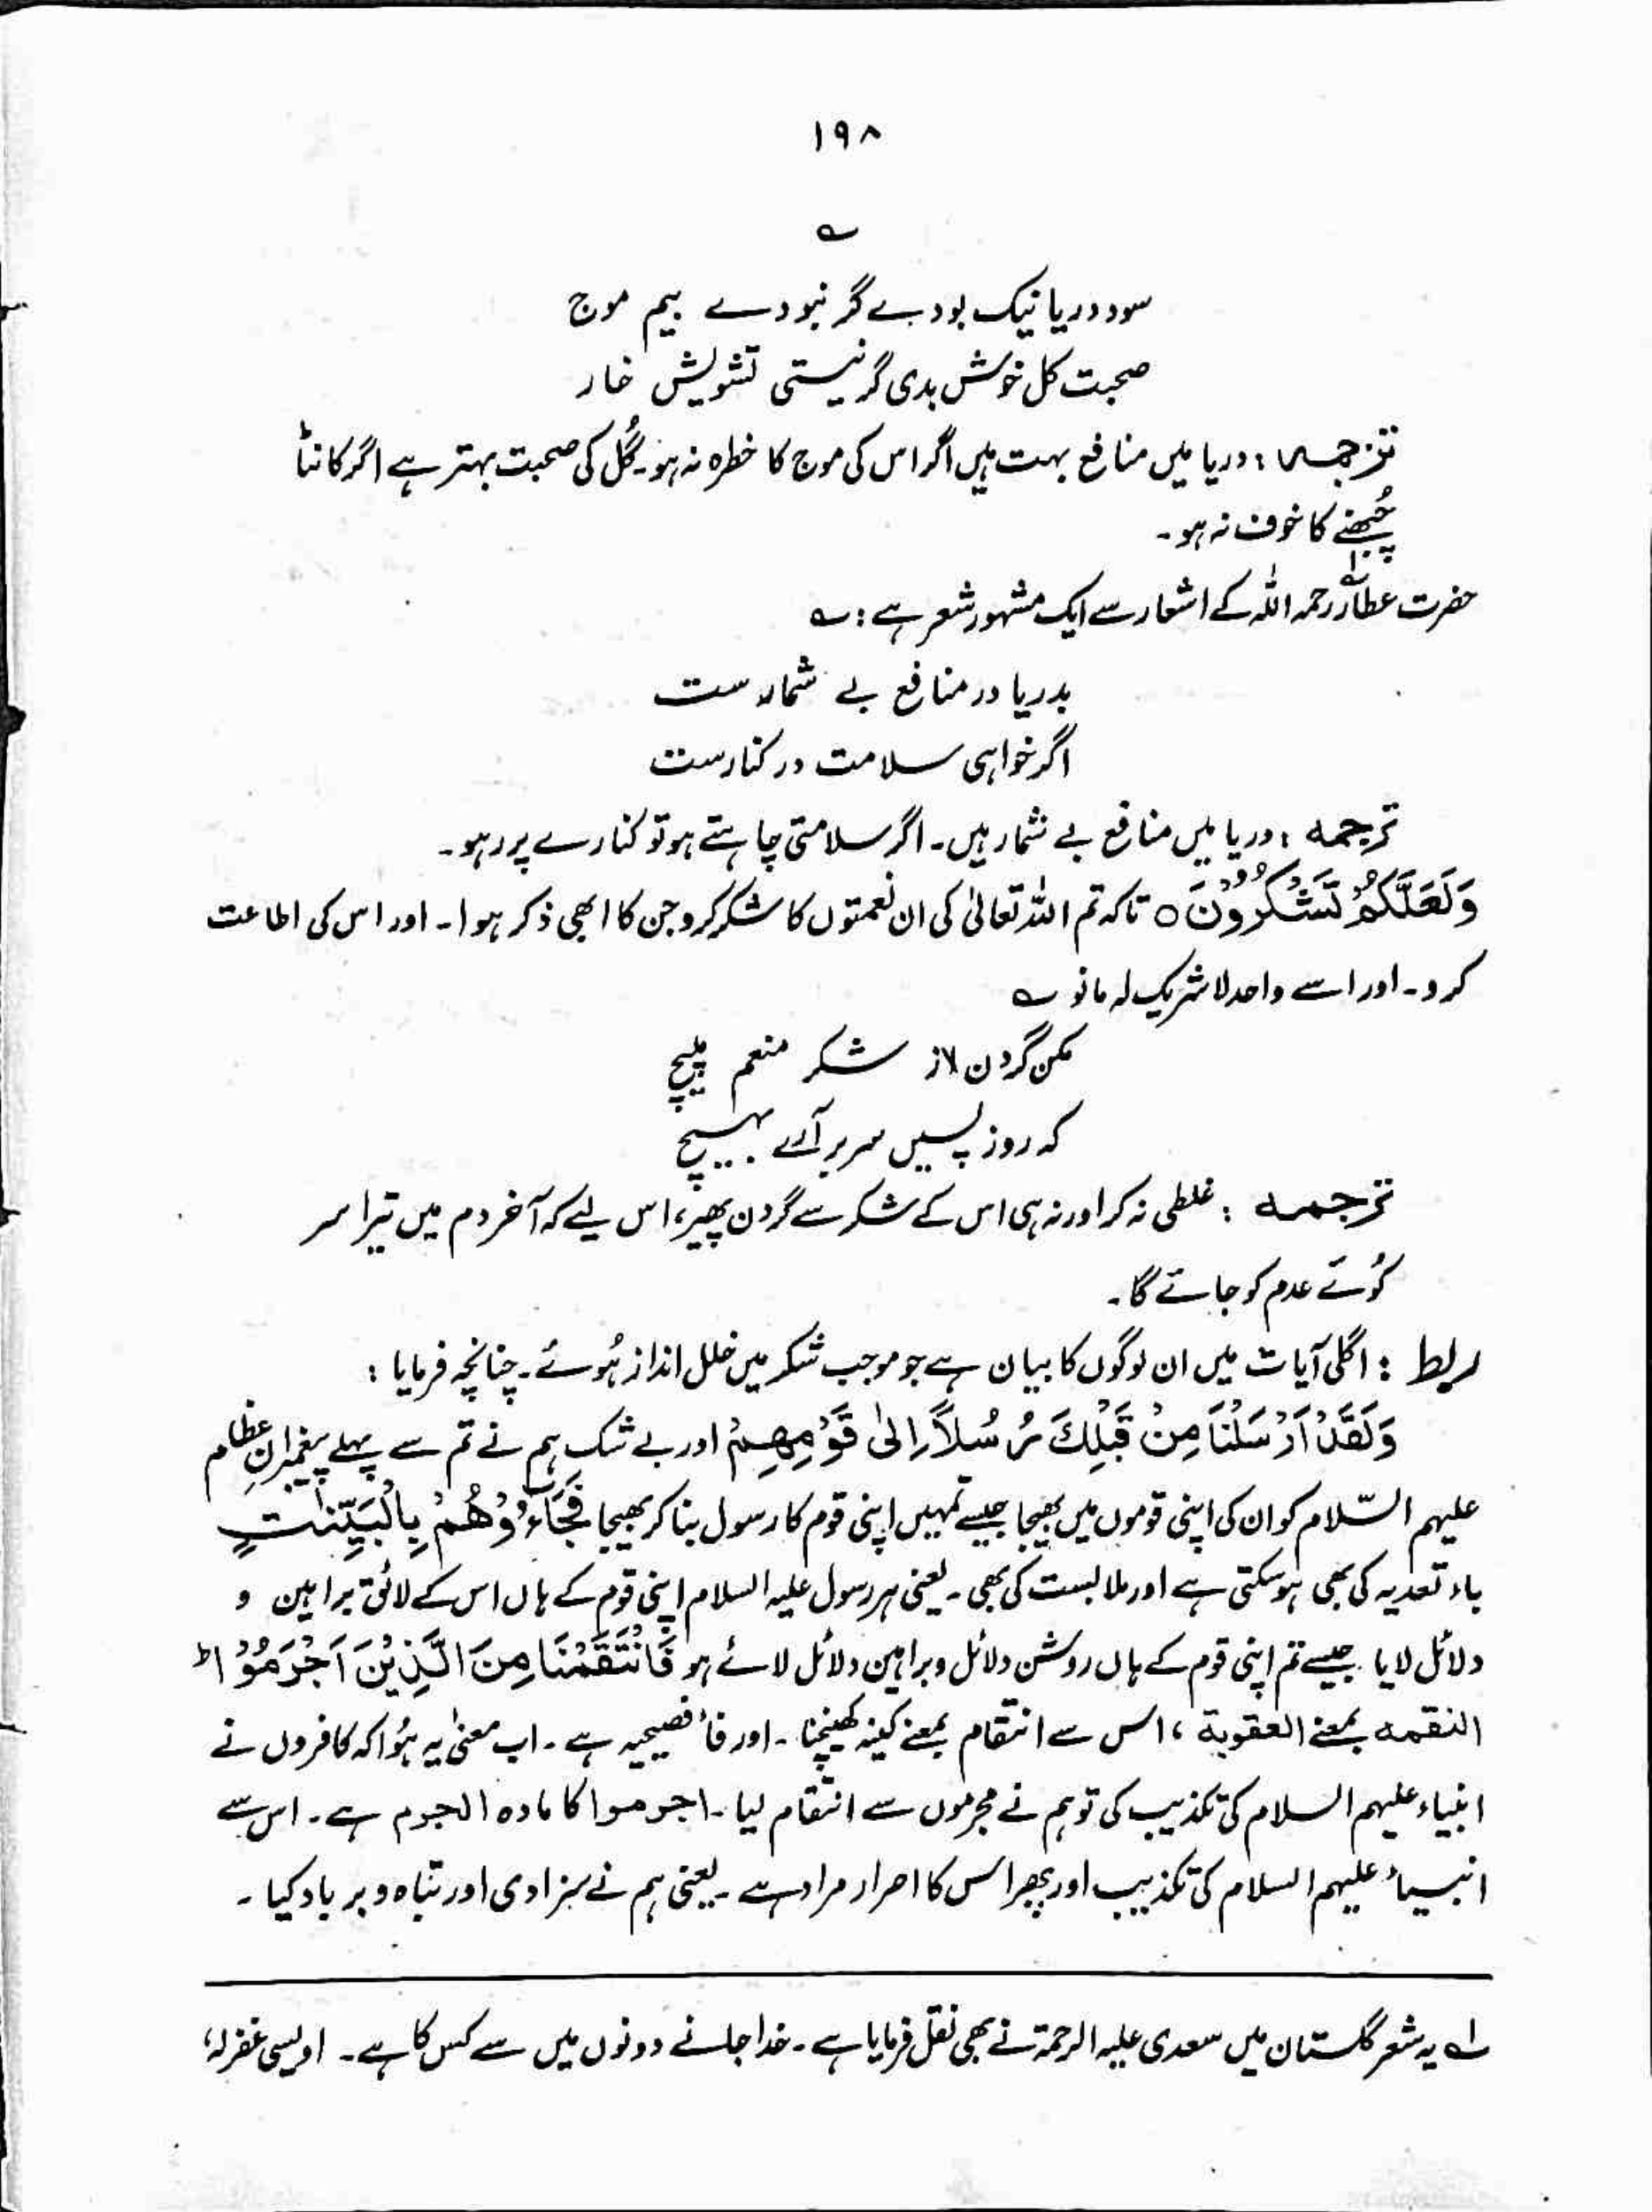 ۱۹۸
؎
سود دریا نیک بودے گر نبودے بیم موج
صحبت گل خوش بدی گر نیستی تشویش خار
ترجمہ : دریا میں منافع بہت ہیں اگر اس کی موج کا خطرہ نہ ہو۔ گُل کی صحبت بہتر ہے اگر کانٹا
چُبھنے کا خوف نہ ہو۔
حضرت عطارؒ رحمہ اللہ کے اشعار سے ایک مشہور شعر ہے : ؎
بدریا در منافع بے شمارست
اگر خواہی سلامت در کنارست
ترجمہ : دریا میں منافع بے شمار ہیں۔ اگر سلامتی چاہتے ہو تو کنارے پر رہو۔
وَلَعَلَّكُمْ تَشْكُرُوْنَ ○ تاکہ تم اللہ تعالیٰ کی ان نعمتوں کا شکر کرو جن کا ابھی ذکر ہوا۔ اور اس کی اطاعت
کرو۔ اور اسے واحد لا شریک لہ مانو ؎
مکن گردن از شکر منعم مپیچ
کہ روز پسیں سر برآرے بہیچ
ترجمہ : غلطی نہ کر اور نہ ہی اس کے شکر سے گردن پھیر، اس لیے کہ آخر دم میں تیرا سر
کُوئے عدم کو جائے گا۔
ربط : اگلی آیات میں ان لوگوں کا بیان ہے جو موجب شکر میں خلل انداز ہُوئے۔ چنانچہ فرمایا :
وَلَقَدْ اَرْسَلْنَا مِنْ قَبْلِكَ رُسُلًا اِلٰى قَوْمِهِمْ اور بے شک ہم نے تم سے پہلے پیغمبرانِ عظام
علیہم السّلام کو ان کی اپنی قوموں میں بھیجا جیسے تمہیں اپنی قوم کا رسول بنا کر بھیجا فَجَآءُوْهُمْ بِالْبَيِّنٰتِ
باء تعدیہ کی بھی ہو سکتی ہے اور ملابست کی بھی۔ یعنی ہر رسول علیہ السلام اپنی قوم کے ہاں اس کے لائق براہین و
دلائل لایا جیسے تم اپنی قوم کے ہاں روشن دلائل و براہین دلائل لائے ہو فَانْتَقَمْنَا مِنَ الَّذِيْنَ اَجْرَمُوْاط
النقمه بمعنے العقوبة ، اس سے انتقام بمعنے کینہ کھینچنا ۔ اور فاء فصیحیہ ہے ۔ اب معنیٰ یہ ہُوا کہ کافروں نے
انبیاء علیہم السلام کی تکذیب کی تو ہم نے مجرموں سے انتقام لیا۔ اجرموا کا مادہ الجرم ہے۔ اس سے
انبیاء علیہم السلام کی تکذیب اور پھر اس کا اصرار مراد ہے۔ یعنی ہم نے سزا دی اور تباہ و برباد کیا ۔
لے یہ شعر گلستان میں سعدی علیہ الرحمۃ نے بھی نقل فرمایا ہے۔ خدا جانے دونوں میں سے کس کا ہے۔ اویسی غفرلہ،